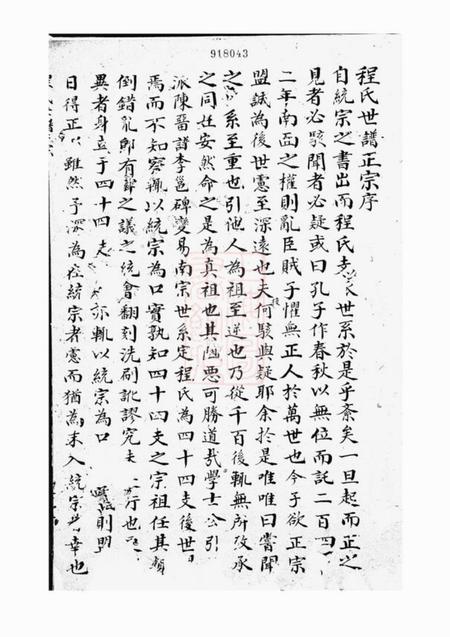 918043
程氏世譜正宗序
自統宗之書出而程氏世系於是乎紊矣一旦起而正之
見者必駭聞者必疑或曰孔子作春秋以無位而託二百四
二年南面之權則亂臣賊子懼無正人於萬世也今子欲正宗
盟誠為後世慮至深遠也夫何駭與疑耶余於是唯唯曰嘗聞
之系至重也引他人為祖至逆也乃從千百後輒無所攷承
之同姓安然命之是為真祖也其凶惡可勝道哉學士公引
派陳晉譜李邕碑變易南宗世系定程氏為四十四支後世
焉而不知察輒以統宗為口實孰知四十四支之宗祖任其顛
倒錯亂郎有辭之議之統會翻刻洗刷訛謬究夫行也
異者身立于四十四支亦輒以統宗為口則明
日得正雖然予深為在統宗者慮而猶為未入統宗者幸也